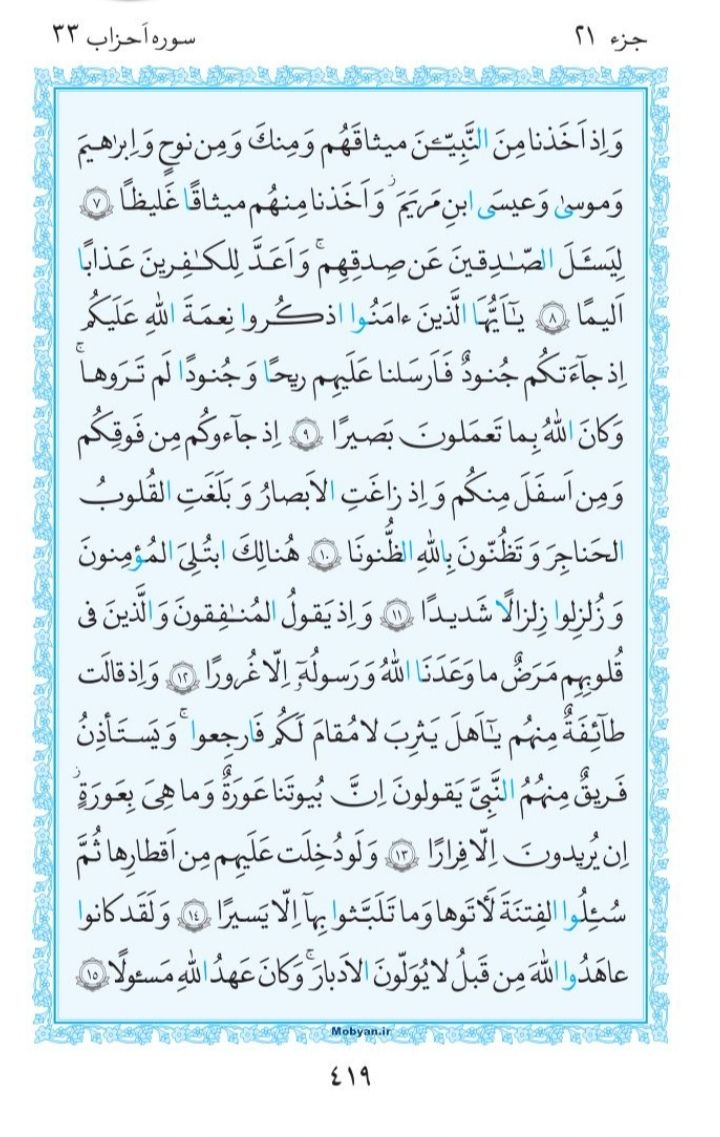 جزء ۲۱
سوره احزاب ۳۳
وَاِذ اَخَذنا مِنَ النَّبِيّـۧنَ ميثاقَهُم وَمِنكَ وَمِن نوحٍ وَاِبراهيمَ
وَموسىٰ وَعيسَى ابنِ مَريَمَ ۖ وَاَخَذنا مِنهُم ميثاقًا غَليظًا ﴿۷﴾
لِيَسـَٔلَ الصّـٰدِقينَ عَن صِدقِهِم ۚ وَاَعَدَّ لِلكـٰفِرينَ عَذابًا
اَليمًا ﴿۸﴾ يـٰٓاَيُّهَا الَّذينَ ءامَنُوا اذكُروا نِعمَةَ اللهِ عَلَيكُم
اِذ جآءَتكُم جُنودٌ فَاَرسَلنا عَلَيهِم ريحًا وَجُنودًا لَم تَرَوها ۚ
وَكانَ اللهُ بِما تَعمَلونَ بَصيرًا ﴿۹﴾ اِذ جآءوكُم مِن فَوقِكُم
وَمِن اَسفَلَ مِنكُم وَاِذ زاغَتِ الاَبصارُ وَبَلَغَتِ القُلوبُ
الحَناجِرَ وَتَظُنّونَ بِاللهِ الظُّنونَا ﴿۱۰﴾ هُنالِكَ ابتُلِىَ المُؤمِنونَ
وَزُلزِلوا زِلزالًا شَديدًا ﴿۱۱﴾ وَاِذ يَقولُ المُنـٰفِقونَ وَالَّذينَ فى
قُلوبِهِم مَرَضٌ ما وَعَدَنَا اللهُ وَرَسولُهٓ اِلّا غُرورًا ﴿۱۲﴾ وَاِذ قالَت
طآئِفَةٌ مِنهُم يـٰٓاَهلَ يَثرِبَ لا مُقامَ لَكُم فَارجِعوا ۚ وَيَستَأذِنُ
فَريقٌ مِنهُمُ النَّبِىَّ يَقولونَ اِنَّ بُيوتَنا عَورَةٌ وَما هِىَ بِعَورَةٍ ۖ
اِن يُريدونَ اِلّا فِرارًا ﴿۱۳﴾ وَلَو دُخِلَت عَلَيهِم مِن اَقطارِها ثُمَّ
سُئِلُوا الفِتنَةَ لَـٔاتَوها وَما تَلَبَّثوا بِهآ اِلّا يَسيرًا ﴿۱۴﴾ وَلَقَد كانوا
عاهَدُوا اللهَ مِن قَبلُ لا يُوَلّونَ الاَدبارَ ۚ وَكانَ عَهدُ اللهِ مَسئولًا ﴿۱۵﴾
Mobyan.ir
٤١٩